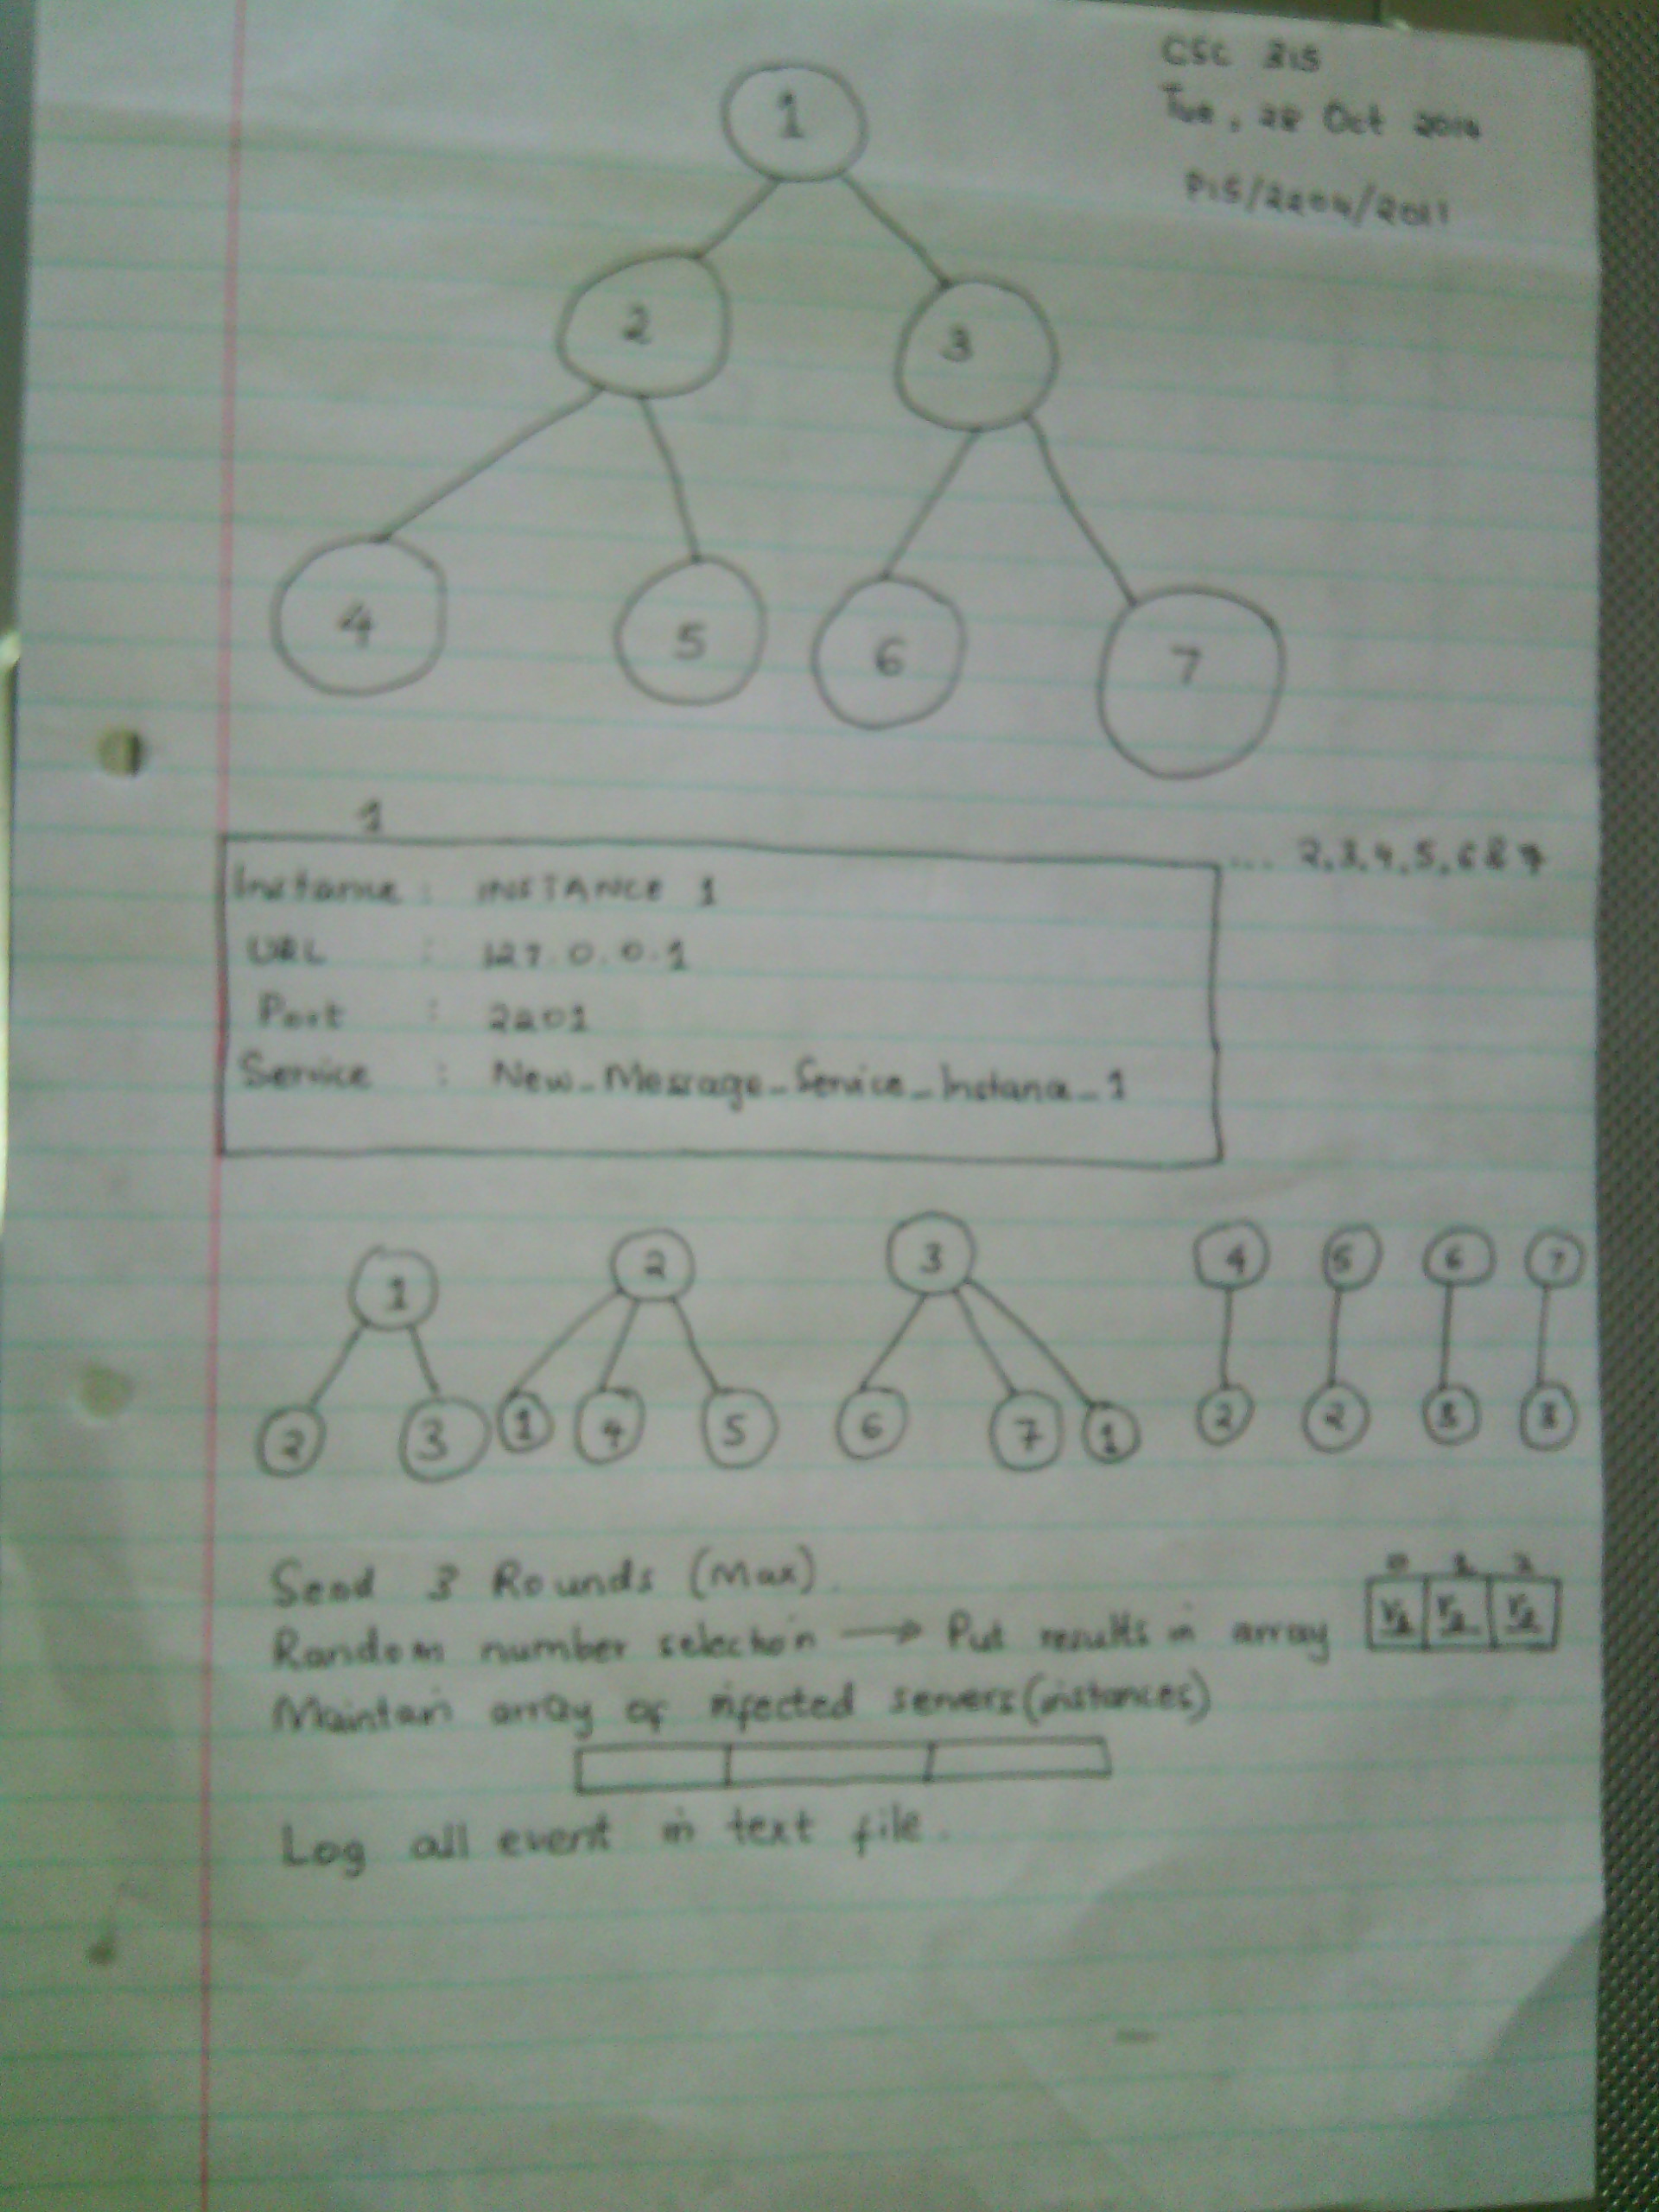 CSC 315
Tue, 28 Oct 2014
P15/2204/2011
1
2
3
4
5
6
7
1
... 2,3,4,5,6 & 7
Instance : INSTANCE 1
URL : 127.0.0.1
Port : 2201
Service : New_Message_Service_Instance_1
1 2 3 4 5 6 7
2 3 1 4 5 6 7 1 2 2 3 3
Send 3 Rounds (Max).
0 1 2
Random number selection → Put results in array
Maintain array of infected servers (instances)
Log all event in text file.